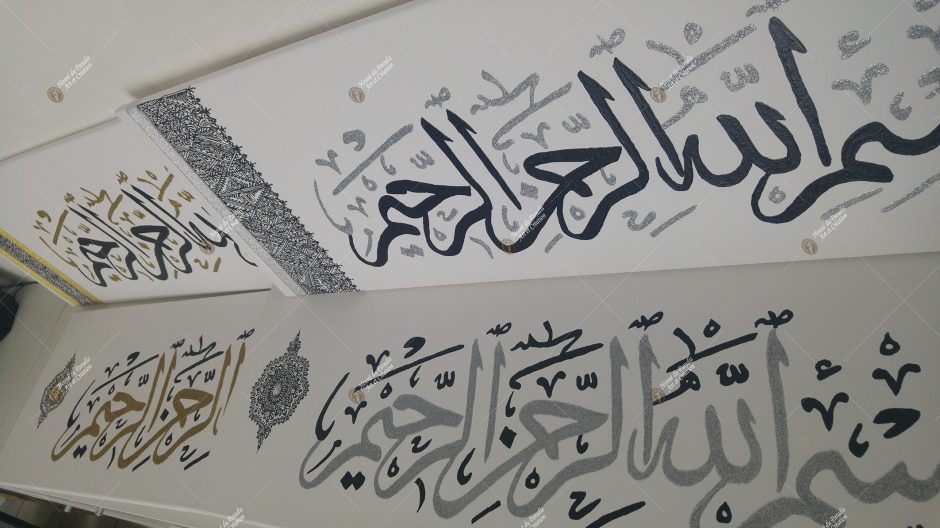 بِسْمِ اللَّهِ الرَّحْمَٰنِ الرَّحِيمِ
بِسْمِ اللَّهِ الرَّحْمَٰنِ الرَّحِيمِ
اللَّهِ الرَّحْمَٰنِ الرَّحِيمِ
الرَّحْمَٰنِ الرَّحِيمِ